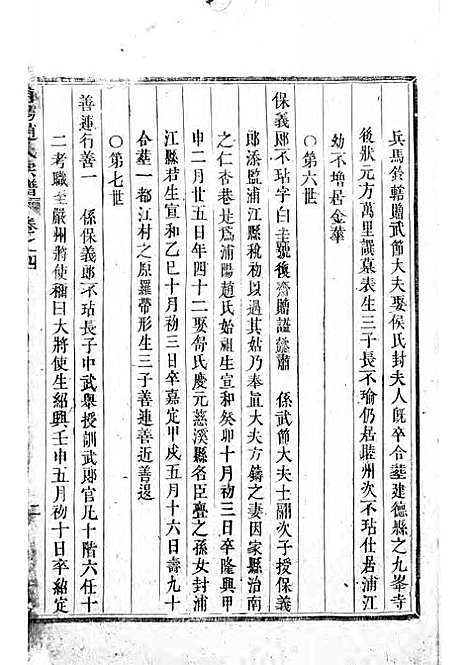 兵馬鈐轄贈武節大夫娶侯氏封夫人旣卒合塟建德縣之九峯寺
後狀元方萬里譔墓表生三子長不瑜仍居睦州次不玷仕居浦江
幼不增居金華
○第六世
保義郎不玷字白圭號後齋贈諡懿肅　係武節大夫士翮次子授保義
郎添監浦江縣稅初以過其姑乃奉眞大夫方鑄之妻因家縣治南
之仁杏巷是爲浦陽趙氏始祖生宣和癸卯十月初三日卒隆興甲
申二月廿五日年四十二娶舒氏慶元慈溪縣名臣亶之孫女封浦
江縣君生宣和乙巳十月初三日卒嘉定甲戌五月十六日壽九十
合塟一都江村之原羅帶形生三子善連善近善逡
○第七世
善連行善一　係保義郎不玷長子中武舉授訓武郎官凡十階六任十
二考職至嚴州將使稱曰大將使生紹興壬申五月初十日卒紹定
趙氏宗譜　卷之四